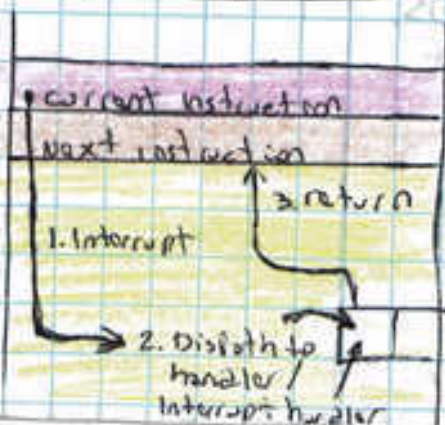 current instruction
Next instruction
3. return
1. Interrupt
2. Dispath to
handler
Interrupt handler